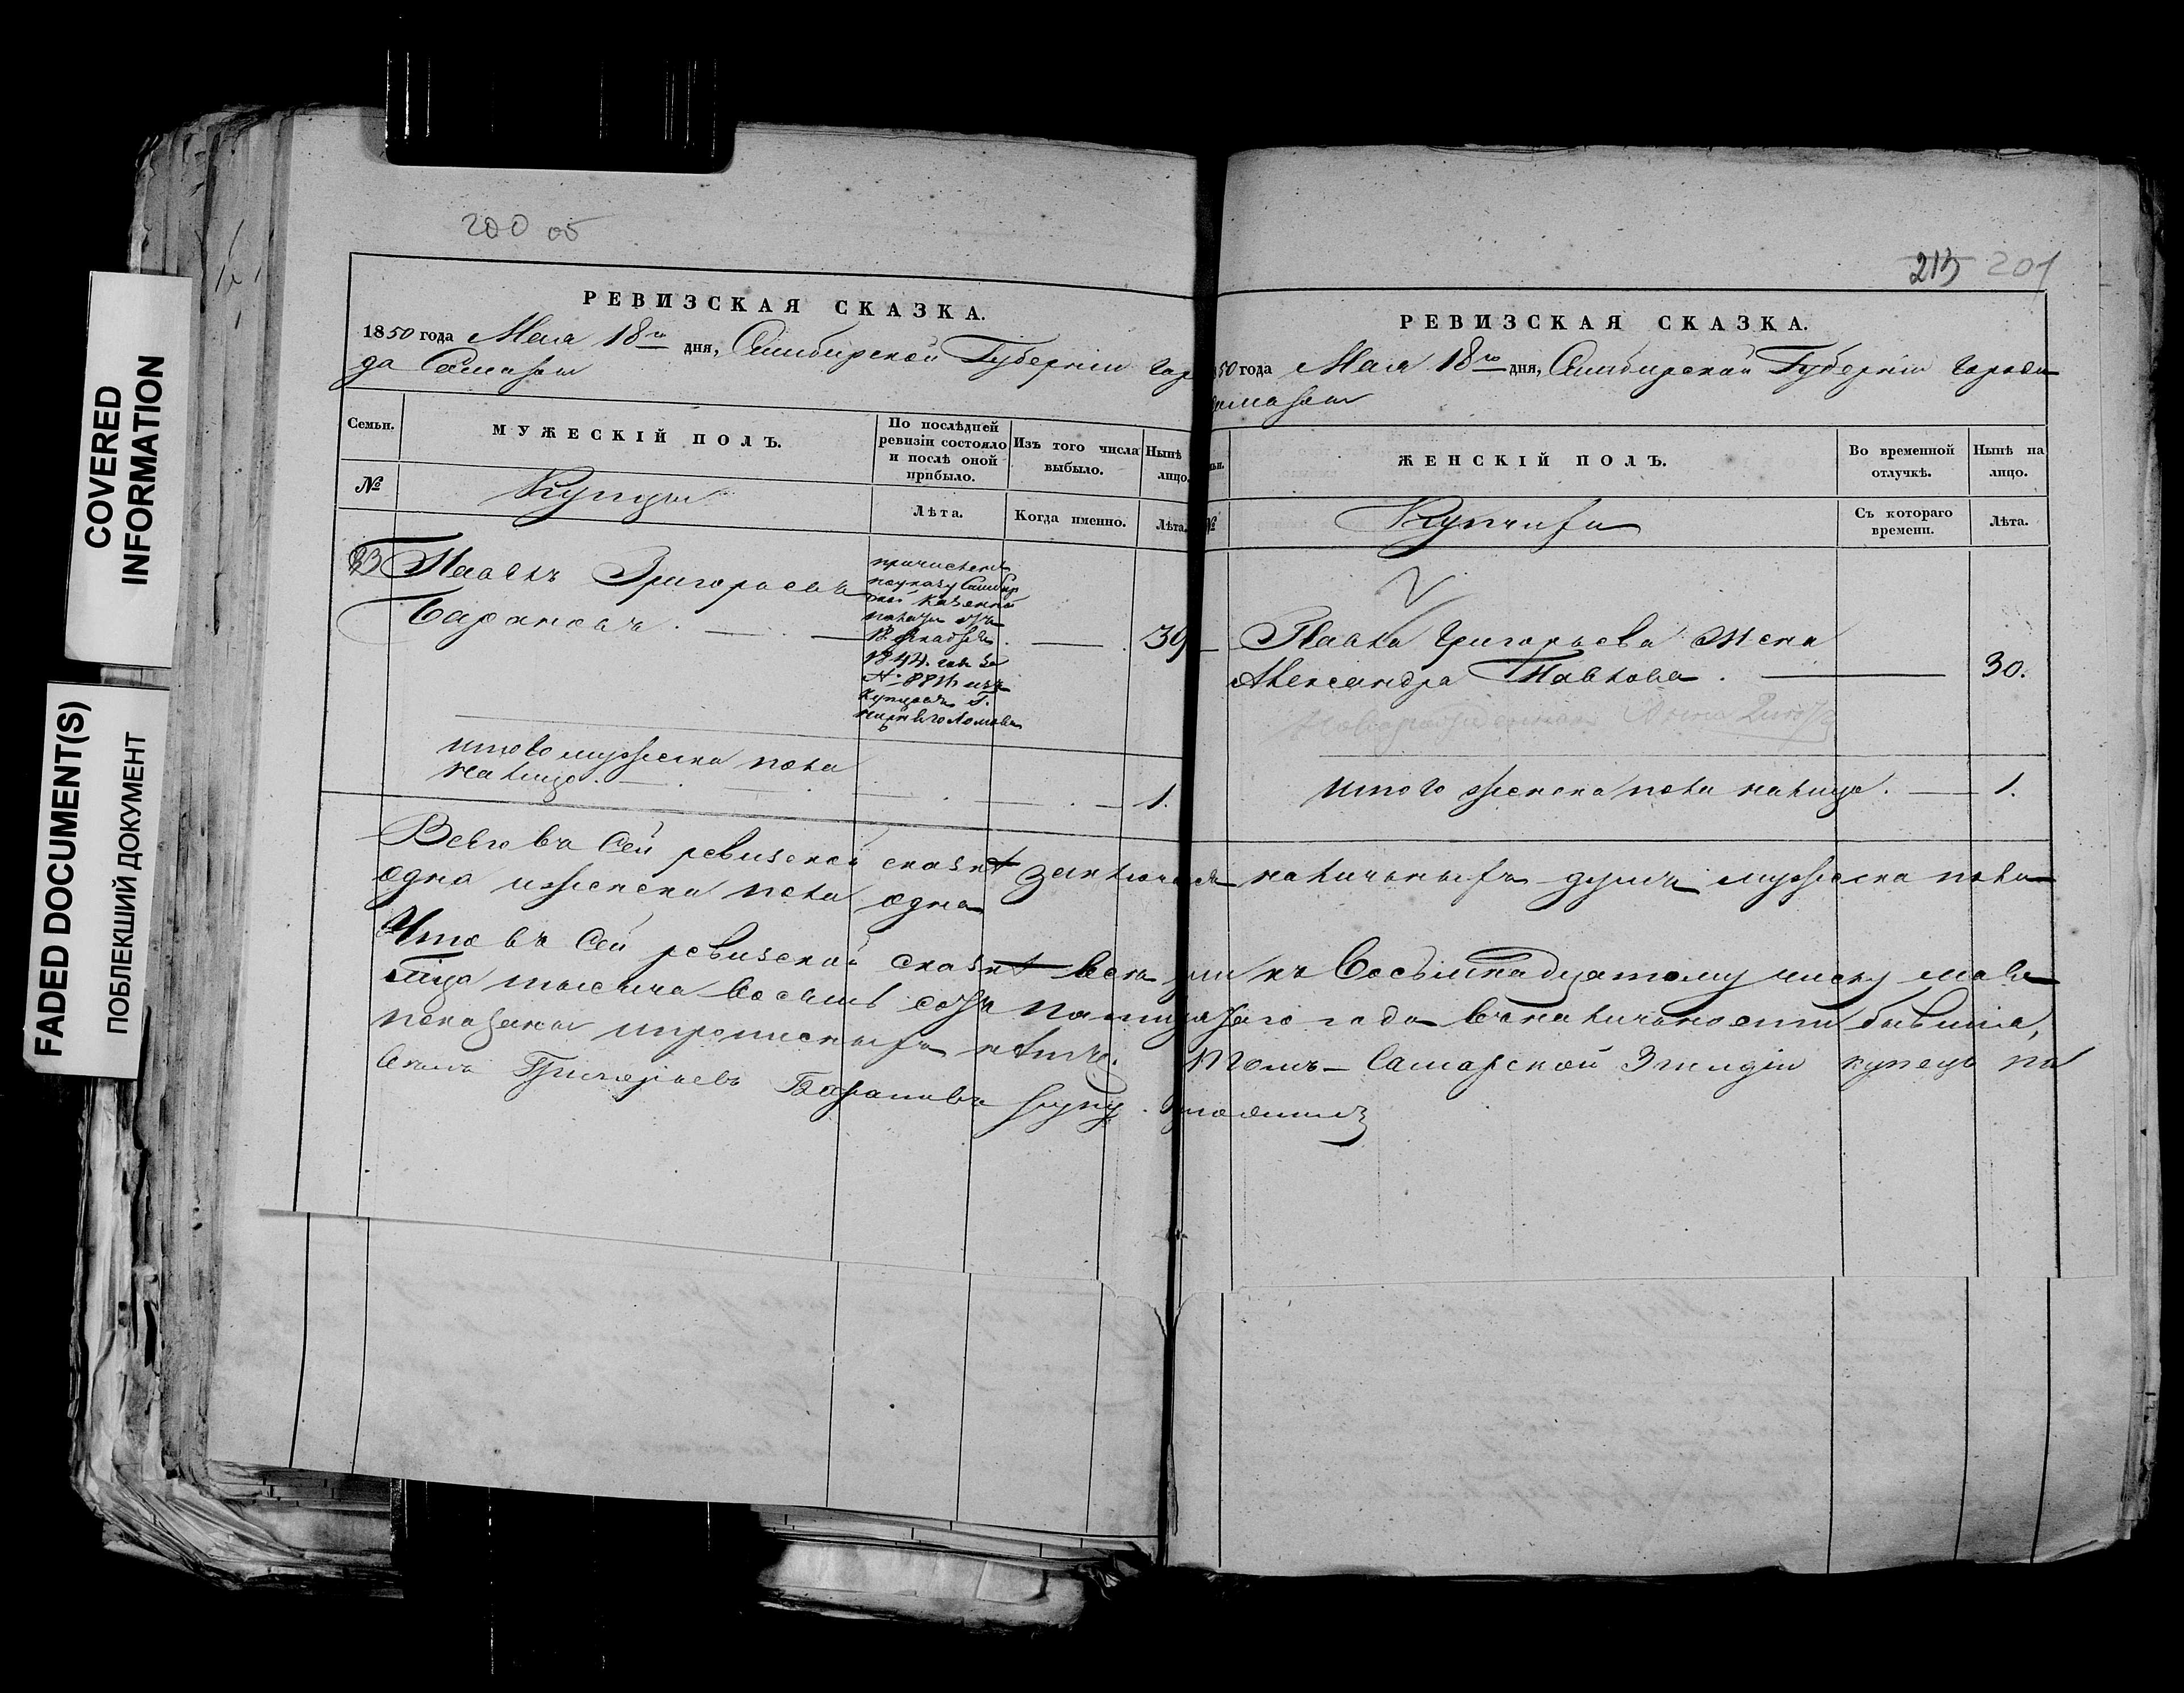 COVERED
INFORMATION
FADED DOCUMENT(S)
ПОБЛЕКШИЙ ДОКУМЕНТ
200 об
РЕВИЗСКАЯ СКАЗКА.
1850 года Мая 18го дня, Симбирской Губерніи горо
да Самары
Семьи.
МУЖЕСКІЙ ПОЛЪ.
По послѣдней
ревизіи состояло
и послѣ оной
прибыло.
Изъ того числа
выбыло.
Нынѣ
лицо.
№
Купцы
Лѣта.
Когда именно.
Лѣта.
Павелъ Григорьевъ
Барановъ.
причисленъ
по указу Симбир
ской Казенной
палаты отъ
18 декабря
за
№ изъ
купцовъ г.
Нижняго Ломова
39
итого мужеска пола
на лицо.
1.
213 201
РЕВИЗСКАЯ СКАЗКА.
50 года Мая 18го дня, Симбирской Губерніи города
Самары
ЖЕНСКІЙ ПОЛЪ.
Во временной
отлучкѣ.
Нынѣ на
лицо.
№
Купчихи
Съ котораго
времени.
Лѣта.
Павла Григорьева жена
Александра Павлова.
30.
итого женска пола на лицо.
1.
Всего въ сей ревизской сказкѣ заключается наличныхъ душъ мужеска пола
одна и женска пола одна
Что въ сей ревизской сказкѣ всѣ къ восьмнадцатому числу маія
тысяча восемь сотъ пятидесятаго года въ наличности бывшіе,
показаны и прописныхъ нѣтъ. въ томъ Самарской 3 гилдіи купецъ Па
велъ Григорьевъ Барановъ руку приложилъ